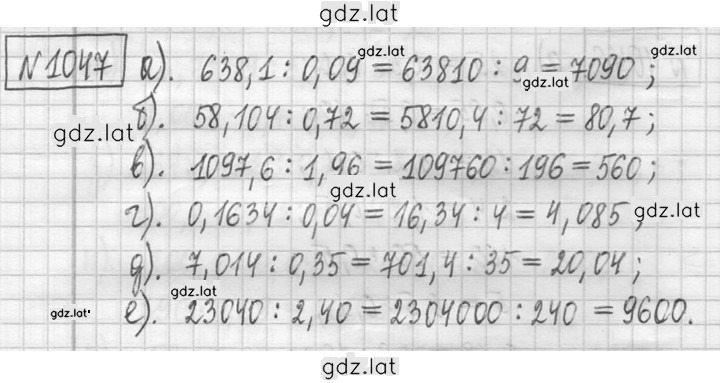 gdz.lat
№1047 а). 638,1 : 0,09 = 63810 : 9 = 7090 ;
gdz.lat
gdz.lat
gdz.lat
б). 58,104 : 0,72 = 5810,4 : 72 = 80,7 ;
gdz.lat
в). 1097,6 : 1,96 = 109760 : 196 = 560 ;
gdz.lat
г). 0,1634 : 0,04 = 16,34 : 4 = 4,085 ;
gdz.lat
д). 7,014 : 0,35 = 701,4 : 35 = 20,04 ;
gdz.lat
gdz.lat
е). 23040 : 2,40 = 2304000 : 240 = 9600.
gdz.lat